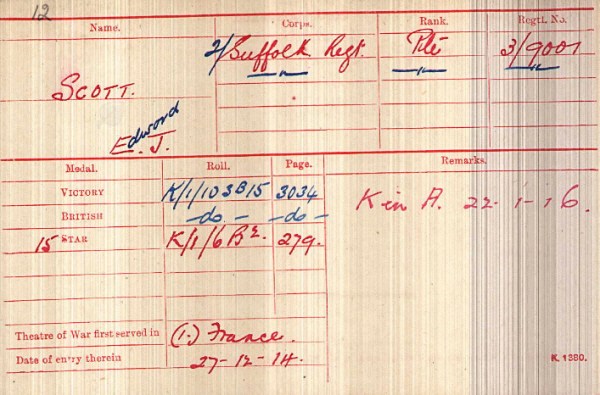 12
Name. Corps. Rank. Regtl. No.
2/Suffolk Regt. Pte 3/9001
—"— —"— —"—
SCOTT.
Edward
E. J.
Medal. Roll. Page. Remarks.
VICTORY K/1/103B15 3034
K in A. 22-1-16.
BRITISH -do- -do-
15 STAR K/1/6 B2. 279.
Theatre of War first served in (1.) France.
Date of entry therein 27-12-14.
K 1380.